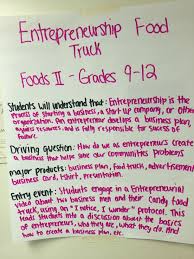 Entrepreneurship Food
Truck
Foods II - Grades 9-12
Students will understand that: Entrepreneurship is the
process of starting a business, a start up company, or other
organization. An entrepreneur develops a business plan,
acquires resources, and is fully responsible for success or
failure.
Driving question: How do we as entrepreneurs create
a business that helps solve our communities problems
major products: business plan, food truck, advertisement
business card, tshirt, presentation.
Entry event: Students engage in a Entrepreneurial
video about two business men and their Candy food
truck, using an "I notice, I wonder" protocol. This
leads students into a discussion about the basics
of entrepreneurs, who they are, what they do, And
how to create a business plan, etc.